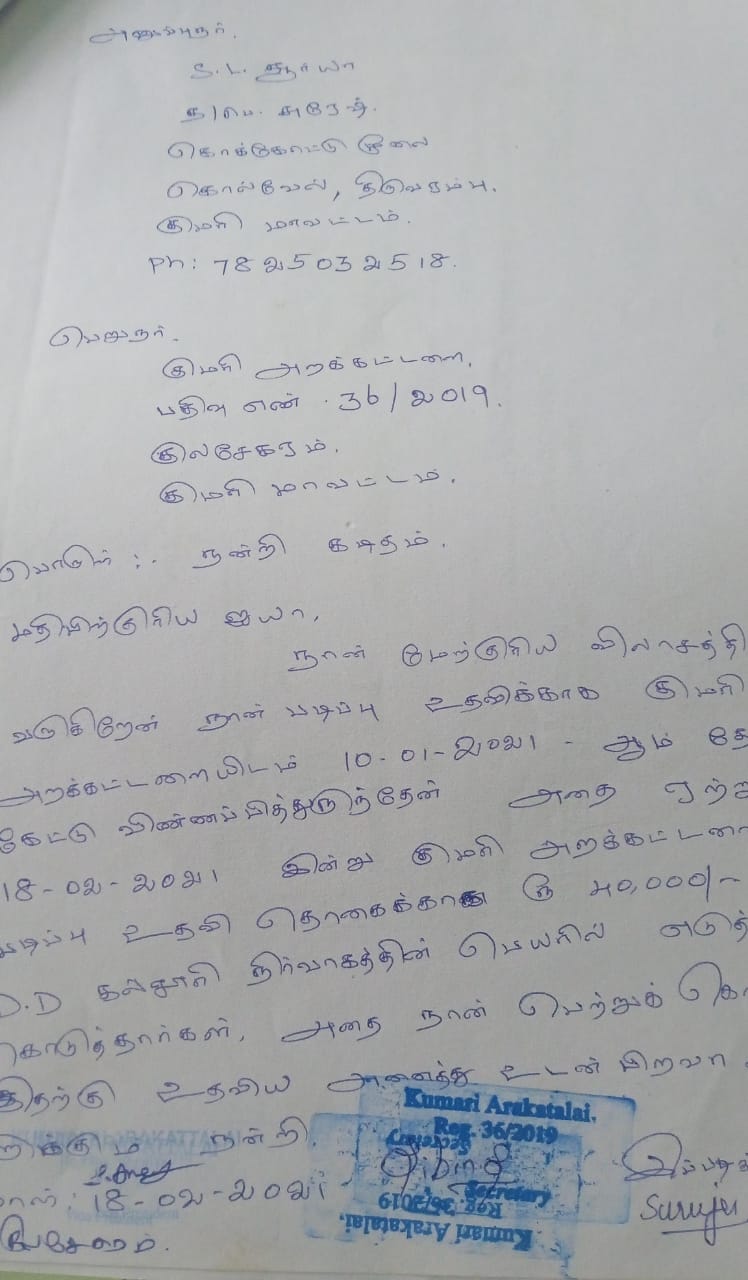 அனுப்புநர்.
S.L. சூர்யா
த/பெ. சுரேஷ்.
மூலை
கொல்வேல், திருவரம்பு.
குமரி மாவட்டம்.
Ph: 7825032518.
பெறுநர்.
குமரி அறக்கட்டளை,
பதிவு எண் . 36/2019.
குலசேகரம்.
குமரி மாவட்டம்.
பொருள் :. நன்றி கடிதம்.
மதிப்பிற்குரிய ஐயா,
நான் மேற்குரிய விலாசத்தி
வருகிறேன் நான் படிப்பு உதவிக்காக குமரி
அறக்கட்டளையிடம் 10-01-2021 - ஆம் தே
கேட்டு விண்ணப்பித்துருந்தேன் அதை ஏற்று
18-02-2021 இன்று குமரி அறக்கட்டளை
படிப்பு உதவி தொகைக்காக ரூ 40,000/-
D.D கல்லூரி நிர்வாகத்தின் பெயரில் எடுத்
கொடுத்தார்கள், அதை நான் பெற்றுக் கொ
இதற்கு உதவிய அனைத்து உடன் பிறவா
நன்றி.
Kumari Arakatalai.
Reg. 36/2019
Secretary
நாள் : 18-02-2021
Secretary
Reg. 36/2019
Kumari Arakatalai.
இப்படிக்